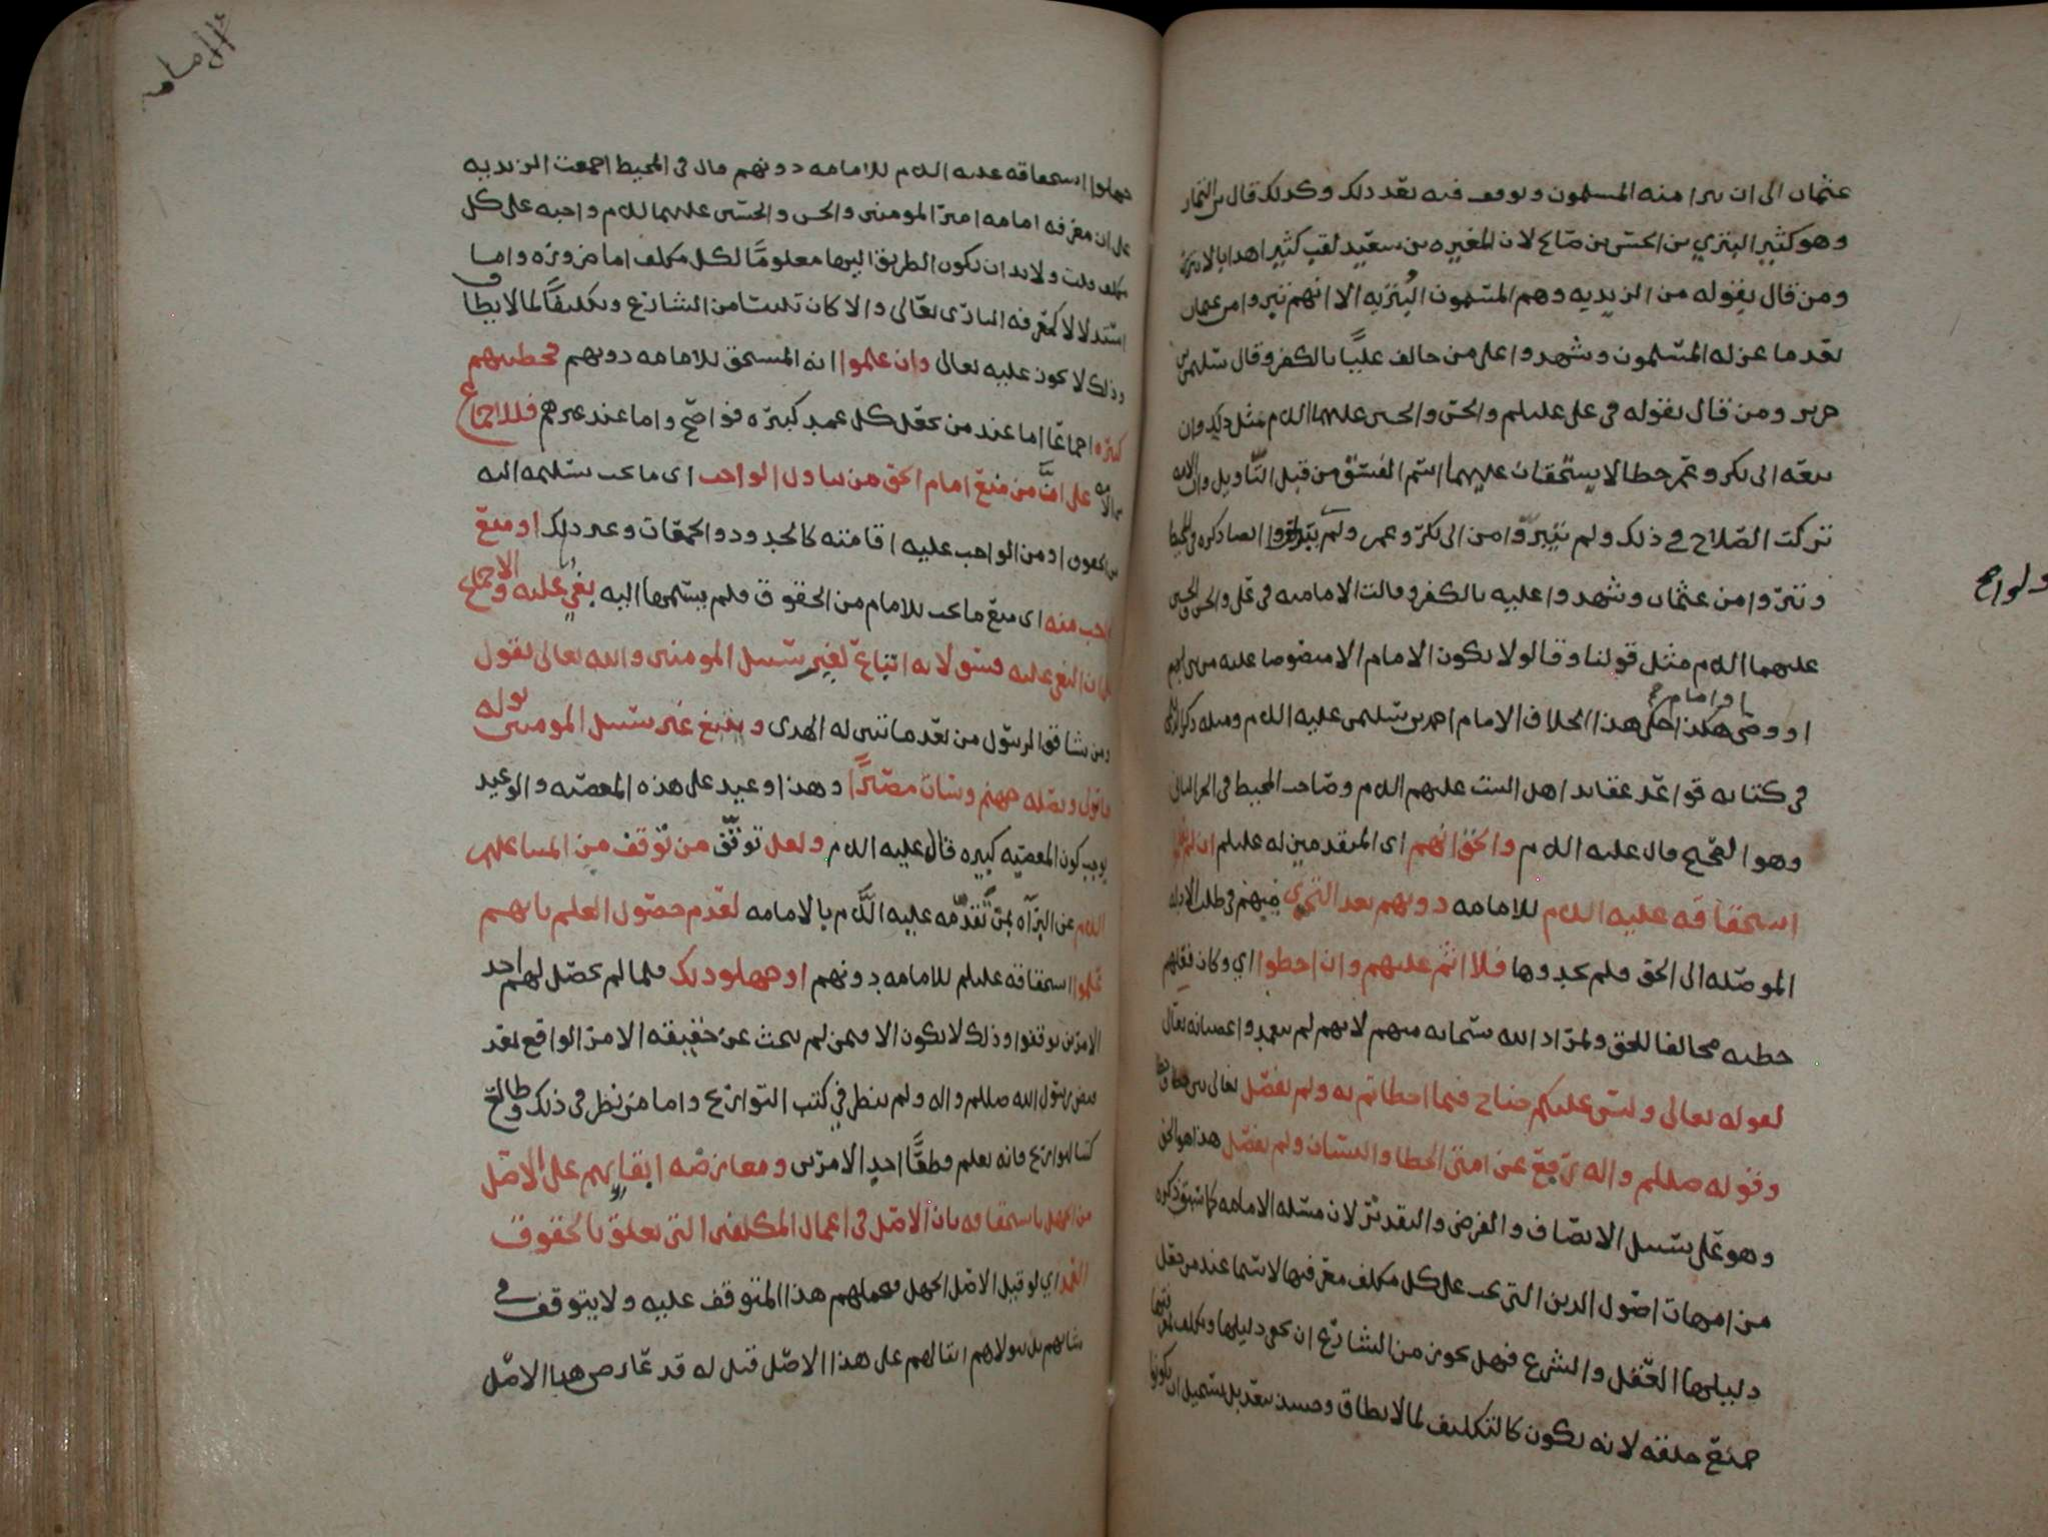 عثمان الى ان برا منه المسلمون وتوقف فيه بعد ذلك وكذلك قال بن التمار
وهو كثير البتري بن الحسن بن صالح لان المغيره بن سعيد لقب كثيرا هذا بالابتر
ومن قال بقوله من الزيديه وهم المسمون البتريه الا انهم تبروا من عثمان
بعد ما عزله المسلمون وشهدوا على من خالف عليًا بالكفر وقال سليمن بن
جرير ومن قال بقوله في علي عليلم والحسن والحسين عليهما اللام مثل ذلك وان
بيعه ابي بكر وعمر خطا لا يستحقان عليهما اسم الفسق من قبل التاويل وان الامه
تركت الصلاح في ذلك ولم يتبروا من ابي بكر وعمر ولم ايضا ذكره في المحيط
وتبروا من عثمان وشهدوا عليه بالكفر وقالت الاماميه في علي والحسن والحسين
عليهما اللام مثل قولنا وقالوا لا يكون الامام الا منصوصا عليه من نبي
او امام
او وصي هكذا حكى هذا الخلاف الامام احمد بن سليمن عليه اللام ومثله ذكر
في كتابه قواعد عقايد اهل البيت عليهم اللام وصاحب المحيط في الجز الثاني
وهو الصحيح قال عليه اللام والحق انهم اى المتقدمين له عليلم ان لم
استحقاقه عليه اللام للامامه دونهم بعد التحري منهم في طلب الادله
الموصله الى الحق فلم يجدوها فلا اثم عليهم وان اخطوا اي وكان فعلهم
خطيه مخالفا للحق ولمراد الله سبحانه منهم لانهم لم يتعمدوا عصيانه تعالى
لقوله تعالى وليس عليكم جناح فيما اخطاتم به ولم يفصل تعالى بين خطا
وقوله صللم واله رفع عن امتي الخطا والنسيان ولم يفصل هذا هو الحق
وهو على سبيل الانصاف والفرض والتقدير لان مسله الامامه كما سبق ذكره
من امهات اصول الدين التي يجب على كل مكلف معرفتها لا سيما عند من يقول
دليلها العقل والشرع فهل يجوز من الشارع ان يخفي دليلها ويكلف
جميع خلقه لانه يكون كالتكليف لما لا يطاق وحينئذ يبعد بل يستحيل ان يكونوا
الامامه
جهلوا استحقاقه عليه اللام للامامه دونهم قال في المحيط اجمعت الزيديه
على ان معرفه امامه امير المومنين والحسن والحسين عليهما اللام واجبه على كل
مكلف قلت ولا بد ان يكون الطريق اليها معلومًا لكل مكلف اما ضروره واما
استدلالا كمعرفه الباري تعالى والا كان تلبيسا من الشارع وتكليفًا لما لا يطاق
وذلك لا يجوز عليه تعالى وان علموا انه المستحق للامامه دونهم فخطيتهم
كبيره اجماعًا اما عند من يجعل كل عمد كبيره فواضح واما عند غيرهم فللاجماع
من الامه على ان من منع امام الحق من تناول الواجب اى ما يجب تسليمه اليه
من الحقوق او من الواجب عليه اقامته كالحدود والجمعات وغير ذلك او منع
الواجب منه اى منع ما يجب للامام من الحقوق فلم يسلمها اليه بغي عليه والاجماع
على ان البغي عليه فسق لانه اتباع لغير سبيل المومنين والله تعالى يقول
ومن يشاقق الرسول من بعد ما تبين له الهدى ويتبع غير سبيل المومنين نوله
ما تولى ونصله جهنم وسات مصيرًا وهذا وعيد على هذه المعصيه والوعيد
يوجب كون المعصيه كبيره قال عليه اللام ولعل توقف من توقف من المتنا عليهم
اللام عن البراه ممن تقدمه عليه اللام بالامامه لعدم حصول العلم بانهم
علموا استحقاقه عليلم للامامه دونهم او جهلوا ذلك فلما لم يحصل لهم احد
الامرين توقفوا وذلك لا يكون الا فيمن لم يبحث عن حقيقه الامر الواقع بعد
قبض رسول الله صللم واله ولم ينظر في كتب التواريخ واما من نظر في ذلك وطالع
كتب التواريخ فانه يعلم قطعًا احد الامرين ومعارضه ابقايهم على الاصل
من الجهل باستحقاقه بان الاصل في اعمال المكلفين التي تعلق بالحقوق
العمد اي لو قيل الاصل الجهل فحملهم هذا المتوقف عليه ولا يتوقف في
شانهم بل يتولاهم ابقا لهم على هذا الاصل قيل له قد عارض هذا الاصل